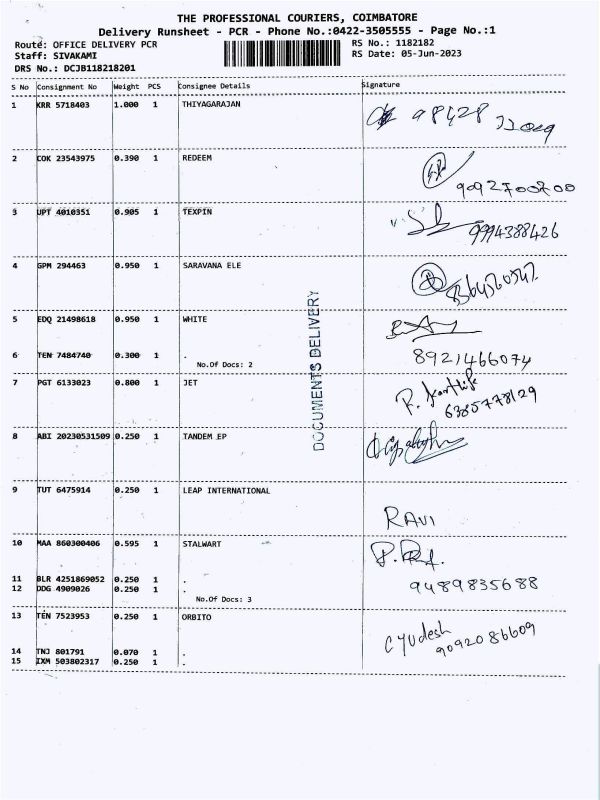 THE PROFESSIONAL COURIERS, COIMBATORE
Delivery Runsheet - PCR - Phone No.:0422-3505555 - Page No.:1
Route: OFFICE DELIVERY PCR
RS No.: 1182182
Staff: SIVAKAMI
RS Date: 05-Jun-2023
DRS No.: DCJB118218201
S No Consignment No Weight PCS Consignee Details Signature
1 KRR 5718403 1.000 1 THIYAGARAJAN
98428
2 COK 23543975 0.390 1 REDEEM
9092700700
3 UPT 4010351 0.905 1 TEXPIN
9994388426
4 GPM 294463 0.950 1 SARAVANA ELE
5 EDQ 21498618 0.950 1 WHITE
6 TEN 7484740 0.300 1 .
No.Of Docs: 2
8921466074
7 PGT 6133023 0.800 1 JET
R. Karthik
6385778129
8 ABI 20230531509 0.250 1 TANDEM EP
9 TUT 6475914 0.250 1 LEAP INTERNATIONAL
RAVI
10 MAA 860300406 0.595 1 STALWART
11 BLR 4251869052 0.250 1 .
12 DDG 4909026 0.250 1 .
No.Of Docs: 3
9489835688
13 TEN 7523953 0.250 1 ORBITO
C Yudesh
9092086609
14 TNJ 801791 0.070 1 .
15 IXM 503802317 0.250 1 .
DOCUMENTS DELIVERY